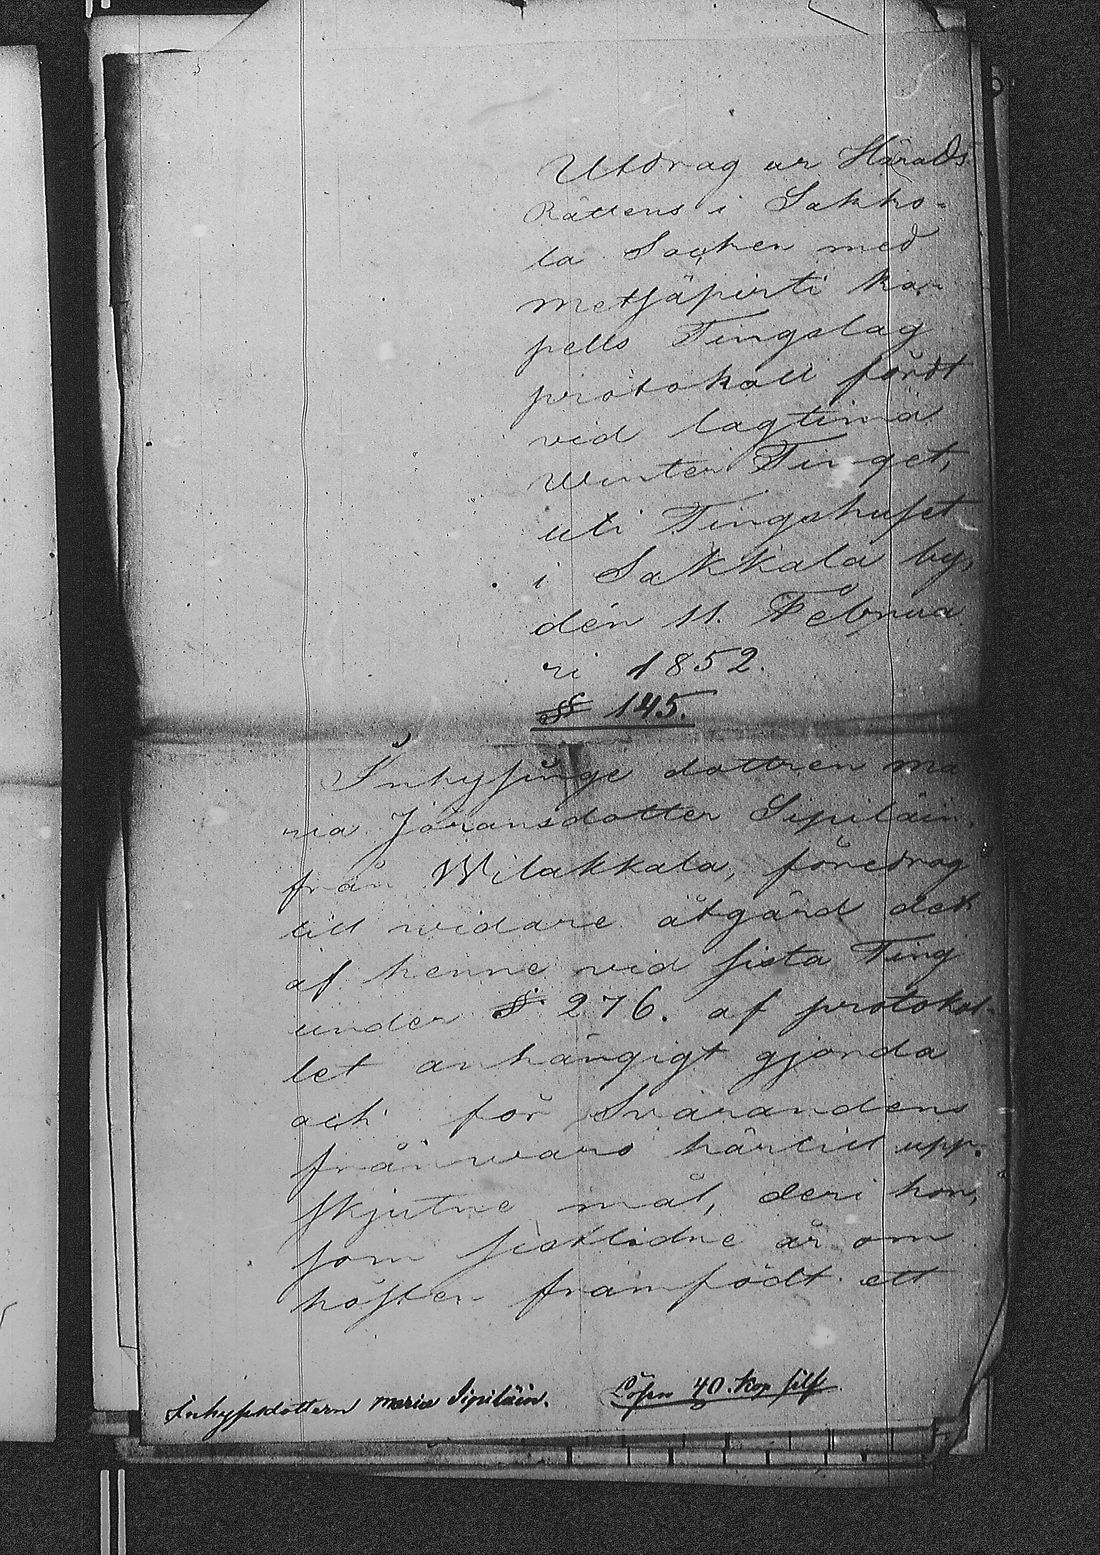 Utdrag ur Härads
Rättens i Sakko-
la Socken med
Metsäpirti ka-
pells Tingslag
protokoll fördt
vid lagtima
Winter Tinget,
uti Tingshuset
i Sakkala by,
den 11. Februa
ri 1852.
§ 145.
Inhysinge dottren Ma
ria Jöransdotter Sipiläin,
från Wilakkala, föredrog
till widare åtgärd det
af henne vid sista Ting
under § 276. af protokol-
let anhängigt gjorda
och för Svarandens
frånwaro härtill upp-
skjutne mål, deri hon,
som sistlidne år om
hösten framfödt ett
Inhysesdottern Maria Sipiläin.
Lösn 40. Kop silf